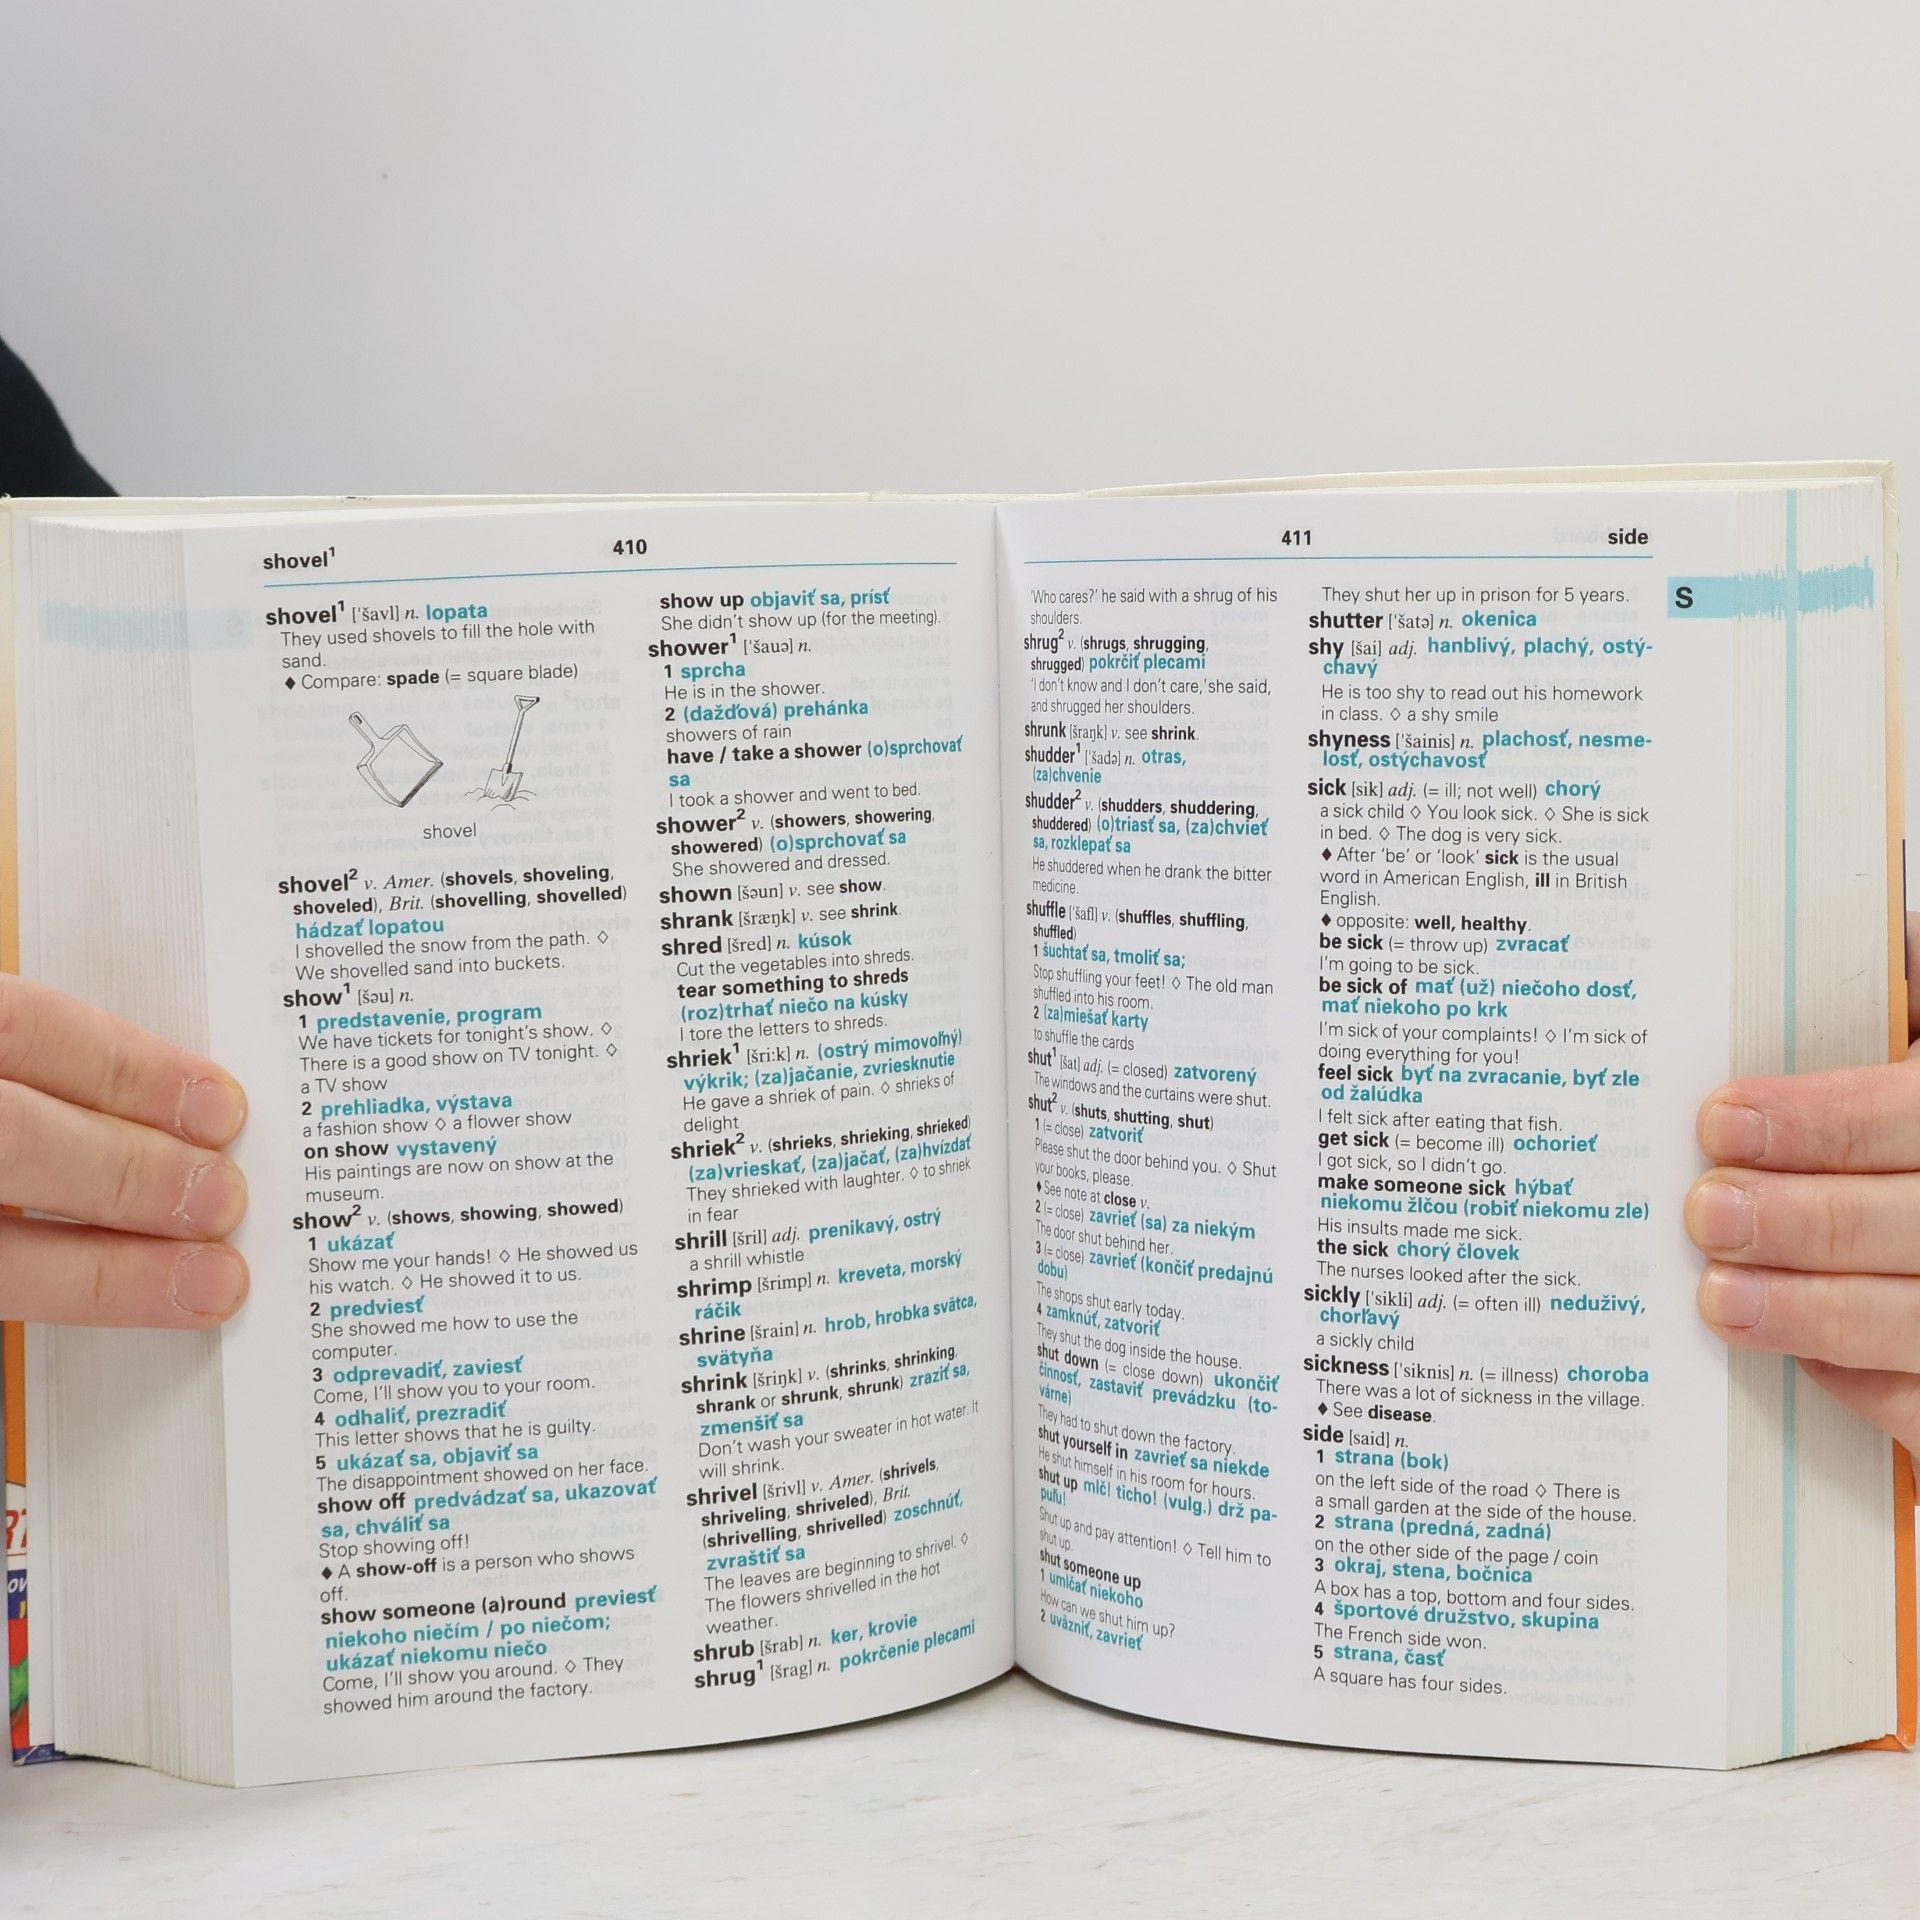 shovel¹
410
shovel¹ ['šavl] n. lopata
They used shovels to fill the hole with
sand.
♦ Compare: spade (= square blade)
shovel
shovel² v. Amer. (shovels, shoveling,
shoveled), Brit. (shovelling, shovelled)
hádzať lopatou
I shovelled the snow from the path. ◊
We shovelled sand into buckets.
show¹ [šəu] n.
1 predstavenie, program
We have tickets for tonight's show. ◊
There is a good show on TV tonight. ◊
a TV show
2 prehliadka, výstava
a fashion show ◊ a flower show
on show vystavený
His paintings are now on show at the
museum.
show² v. (shows, showing, showed)
1 ukázať
Show me your hands! ◊ He showed us
his watch. ◊ He showed it to us.
2 predviesť
She showed me how to use the
computer.
3 odprevadiť, zaviesť
Come, I'll show you to your room.
4 odhaliť, prezradiť
This letter shows that he is guilty.
5 ukázať sa, objaviť sa
The disappointment showed on her face.
show off predvádzať sa, ukazovať
sa, chváliť sa
Stop showing off!
♦ A show-off is a person who shows
off.
show someone (a)round previesť
niekoho niečím / po niečom;
ukázať niekomu niečo
Come, I'll show you around. ◊ They
showed him around the factory.
show up objaviť sa, prísť
She didn't show up (for the meeting).
shower¹ ['šauə] n.
1 sprcha
He is in the shower.
2 (dažďová) prehánka
showers of rain
have / take a shower (o)sprchovať
sa
I took a shower and went to bed.
shower² v. (showers, showering,
showered) (o)sprchovať sa
She showered and dressed.
shown [šəun] v. see show.
shrank [šræŋk] v. see shrink.
shred [šred] n. kúsok
Cut the vegetables into shreds.
tear something to shreds
(roz)trhať niečo na kúsky
I tore the letters to shreds.
shriek¹ [šri:k] n. (ostrý mimovoľný)
výkrik; (za)jačanie, zvriesknutie
He gave a shriek of pain. ◊ shrieks of
delight
shriek² v. (shrieks, shrieking, shrieked)
(za)vrieskať, (za)jačať, (za)hvízdať
They shrieked with laughter. ◊ to shriek
in fear
shrill [šril] adj. prenikavý, ostrý
a shrill whistle
shrimp [šrimp] n. kreveta, morský
ráčik
shrine [šrain] n. hrob, hrobka svätca,
svätyňa
shrink [šriŋk] v. (shrinks, shrinking,
shrank or shrunk, shrunk) zraziť sa,
zmenšiť sa
Don't wash your sweater in hot water. It
will shrink.
shrivel [šrivl] v. Amer. (shrivels,
shriveling, shriveled), Brit.
(shrivelling, shrivelled) zoschnúť,
zvraštiť sa
The leaves are beginning to shrivel. ◊
The flowers shrivelled in the hot
weather.
shrub [šrab] n. ker, krovie
shrug¹ [šrag] n. pokrčenie plecami
411
side
'Who cares?' he said with a shrug of his
shoulders.
shrug² v. (shrugs, shrugging,
shrugged) pokrčiť plecami
'I don't know and I don't care,' she said,
and shrugged her shoulders.
shrunk [šraŋk] v. see shrink.
shudder¹ ['šadə] n. otras,
(za)chvenie
shudder² v. (shudders, shuddering,
shuddered) (o)triasť sa, (za)chvieť
sa, rozklepať sa
He shuddered when he drank the bitter
medicine.
shuffle ['šafl] v. (shuffles, shuffling,
shuffled)
1 šuchtať sa, tmoliť sa;
Stop shuffling your feet! ◊ The old man
shuffled into his room.
2 (za)miešať karty
to shuffle the cards
shut¹ [šat] adj. (= closed) zatvorený
The windows and the curtains were shut.
shut² v. (shuts, shutting, shut)
1 (= close) zatvoriť
Please shut the door behind you. ◊ Shut
your books, please.
♦ See note at close v.
2 (= close) zavrieť (sa) za niekým
The door shut behind her.
3 (= close) zavrieť (končiť predajnú
dobu)
The shops shut early today.
4 zamknúť, zatvoriť
They shut the dog inside the house.
shut down (= close down) ukončiť
činnosť, zastaviť prevádzku (to-
várne)
They had to shut down the factory.
shut yourself in zavrieť sa niekde
He shut himself in his room for hours.
shut up mlč! ticho! (vulg.) drž pa-
puľu!
Shut up and pay attention! ◊ Tell him to
shut up.
shut someone up
1 umlčať niekoho
How can we shut him up?
2 uväzniť, zavrieť
They shut her up in prison for 5 years.
shutter ['šatə] n. okenica
shy [šai] adj. hanblivý, plachý, ostý-
chavý
He is too shy to read out his homework
in class. ◊ a shy smile
shyness ['šainis] n. plachosť, nesme-
losť, ostýchavosť
sick [sik] adj. (= ill; not well) chorý
a sick child ◊ You look sick. ◊ She is sick
in bed. ◊ The dog is very sick.
♦ After 'be' or 'look' sick is the usual
word in American English, ill in British
English.
♦ opposite: well, healthy.
be sick (= throw up) zvracať
I'm going to be sick.
be sick of mať (už) niečoho dosť,
mať niekoho po krk
I'm sick of your complaints! ◊ I'm sick of
doing everything for you!
feel sick byť na zvracanie, byť zle
od žalúdka
I felt sick after eating that fish.
get sick (= become ill) ochorieť
I got sick, so I didn't go.
make someone sick hýbať
niekomu žlčou (robiť niekomu zle)
His insults made me sick.
the sick chorý človek
The nurses looked after the sick.
sickly ['sikli] adj. (= often ill) neduživý,
chorľavý
a sickly child
sickness ['siknis] n. (= illness) choroba
There was a lot of sickness in the village.
♦ See disease.
side [said] n.
1 strana (bok)
on the left side of the road ◊ There is
a small garden at the side of the house.
2 strana (predná, zadná)
on the other side of the page / coin
3 okraj, stena, bočnica
A box has a top, bottom and four sides.
4 športové družstvo, skupina
The French side won.
5 strana, časť
A square has four sides.
S